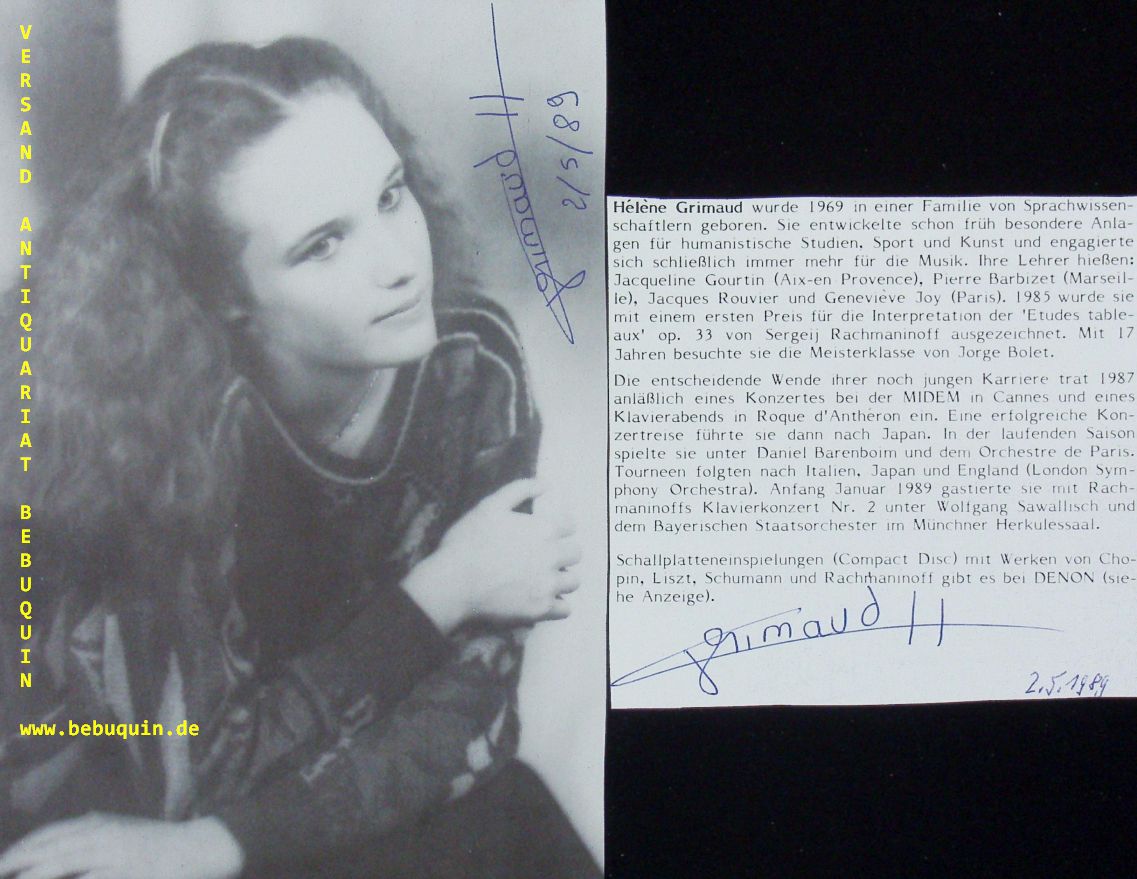 VERSAND ANTIQUARIAT BEBUQUIN
www.bebuquin.de
Grimaud H
2/5/89
Hélène Grimaud wurde 1969 in einer Familie von Sprachwissen-
schaftlern geboren. Sie entwickelte schon früh besondere Anla-
gen für humanistische Studien, Sport und Kunst und engagierte
sich schließlich immer mehr für die Musik. Ihre Lehrer hießen:
Jacqueline Gourtin (Aix-en Provence), Pierre Barbizet (Marseil-
le), Jacques Rouvier und Geneviève Joy (Paris). 1985 wurde sie
mit einem ersten Preis für die Interpretation der 'Etudes table-
aux' op. 33 von Sergeij Rachmaninoff ausgezeichnet. Mit 17
Jahren besuchte sie die Meisterklasse von Jorge Bolet.
Die entscheidende Wende ihrer noch jungen Karriere trat 1987
anläßlich eines Konzertes bei der MIDEM in Cannes und eines
Klavierabends in Roque d'Anthéron ein. Eine erfolgreiche Kon-
zertreise führte sie dann nach Japan. In der laufenden Saison
spielte sie unter Daniel Barenboim und dem Orchestre de Paris.
Tourneen folgten nach Italien, Japan und England (London Sym-
phony Orchestra). Anfang Januar 1989 gastierte sie mit Rach-
maninoffs Klavierkonzert Nr. 2 unter Wolfgang Sawallisch und
dem Bayerischen Staatsorchester im Münchner Herkulessaal.
Schallplatteneinspielungen (Compact Disc) mit Werken von Cho-
pin, Liszt, Schumann und Rachmaninoff gibt es bei DENON (sie-
he Anzeige).
Grimaud H
2.5.1989